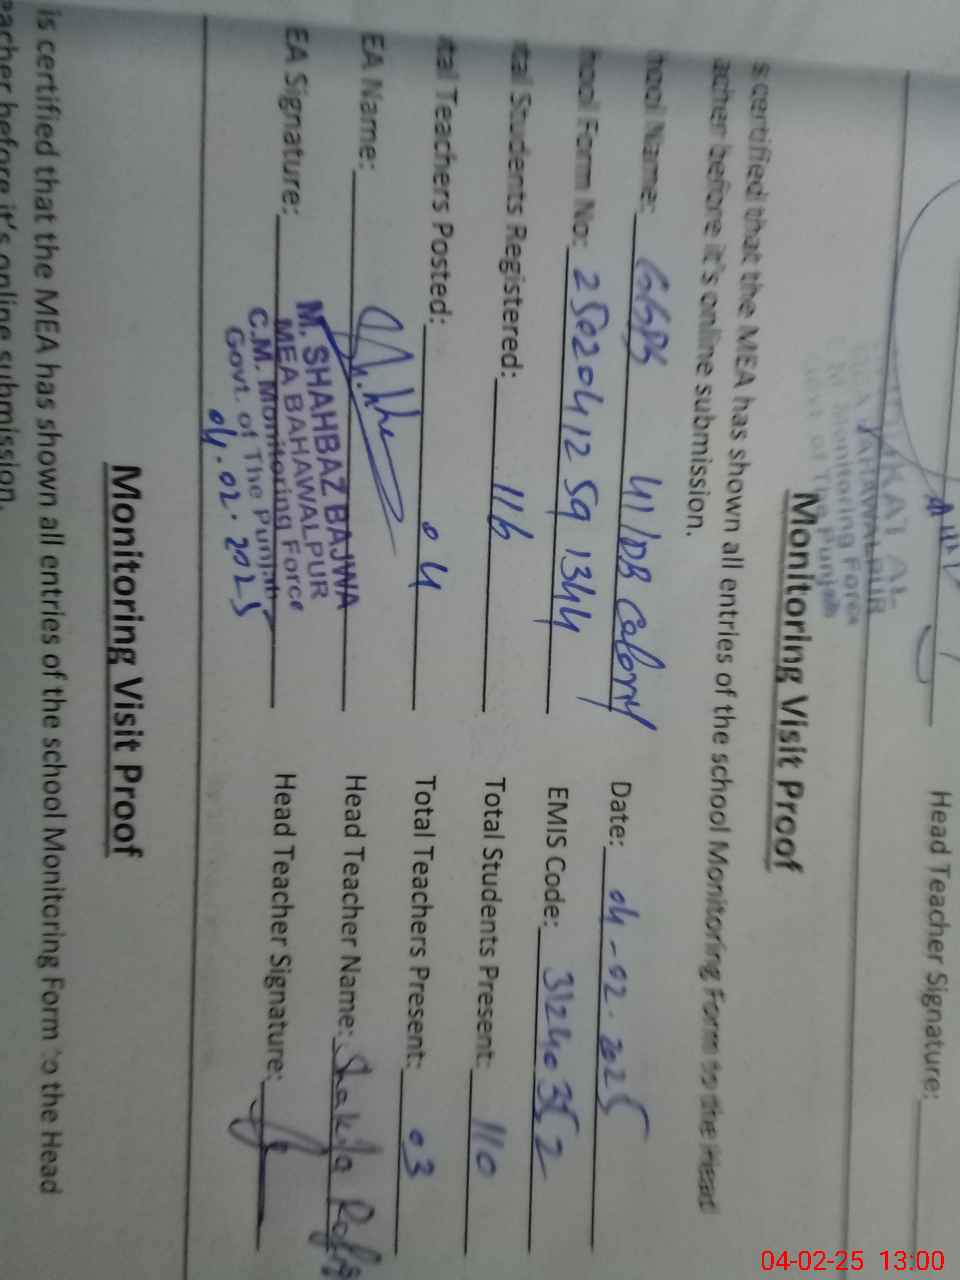 Head Teacher Signature:
BAHAWALPUR
Monitoring Force
Monitoring Visit Proof
is certified that the MEA has shown all entries of the school Monitoring Form to the Head
acher before it's online submission.
hool Name: 41/DB Colony Date: 04-02-2025
hool Form No: 2502041259 1344 EMIS Code: 31240352
tal Students Registered: 116 Total Students Present: 110
tal Teachers Posted: 04 Total Teachers Present: 03
EA Name: Head Teacher Name: Shakila
EA Signature: Head Teacher Signature:
M. SHAHBAZ BAJWA
MEA BAHAWALPUR
C.M. Monitoring Force
Govt. of The Punjab
04.02.2025
Monitoring Visit Proof
is certified that the MEA has shown all entries of the school Monitoring Form to the Head
eacher before it's online submission.
04-02-25 13:00